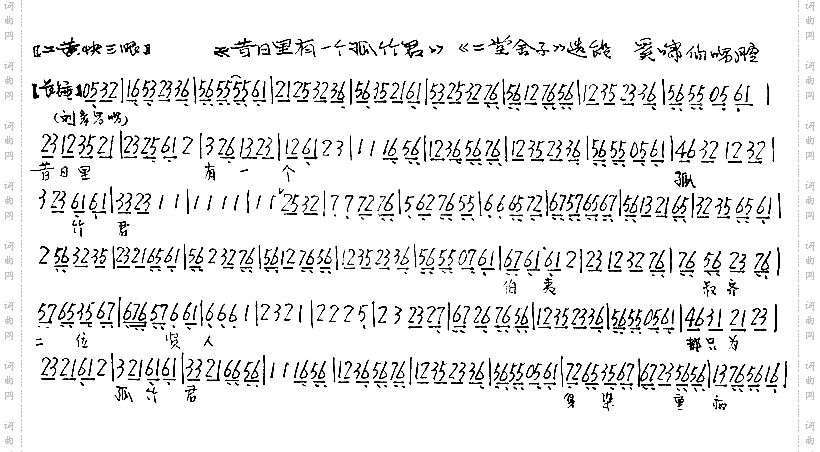 【二黄快三眼】 《昔日里有一个孤竹君》 《二堂舍子》选段 奚啸伯唱腔
【长锤】0532|1653236|56555561|21253236|56352161|53253276|56127656|12352336|56550561|
(刘彦昌唱)
23123521|2325612|3261323|126123|111656|12365676|12352336|56550561|46321232|
昔日里 有一个 孤
3236161|332311|1111|112532|777276|5627655|666572|67576567|56132165|32356561|
竹君
2563235|23216561|5623276|56127656|12352336|56550761|6761612|23123276|76562376|
伯夷 叔齐
57653567|67657661|6661|2321|2225|232327|67267656|12352336|56550561|46312123|
二位 贤人 都只为
2321612|3216161|33216656|111656|12365676|12352336|56550561|72653567|67235656|13765616|
孤竹君 身染重病
词曲网